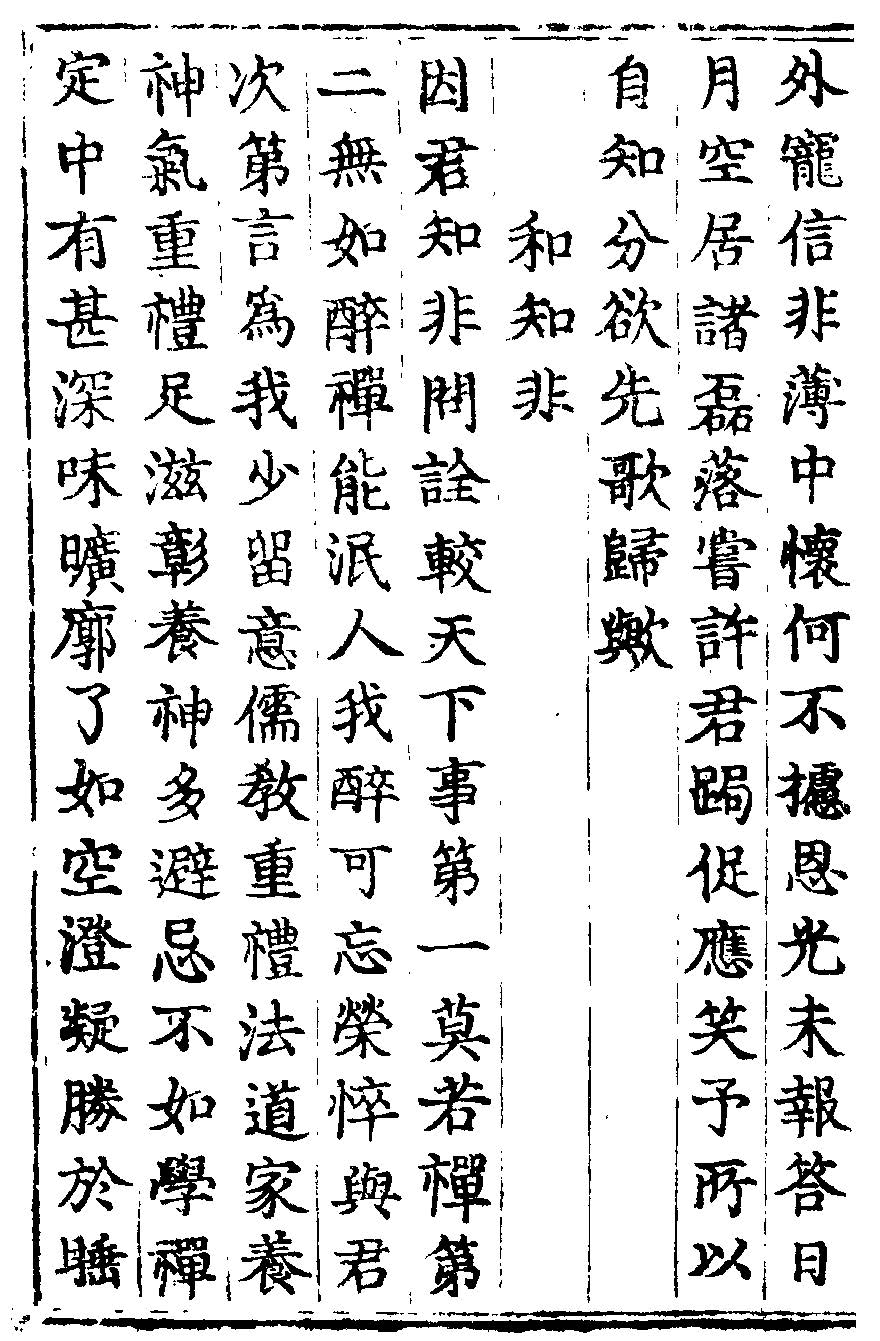 外寵信非薄中懷何不攄恩光未報答日
月空居諸磊落嘗許君跼促應笑予所以
自知分欲先歌歸歟
和知非
因君知非問詮較天下事第一莫若禪第
二無如醉禪能泯人我醉可忘榮悴與君
次第言為我少留意儒教重禮法道家養
神氣重禮足滋彰養神多避忌不如學禪
定中有甚深味曠廓了如空澄凝勝於睡